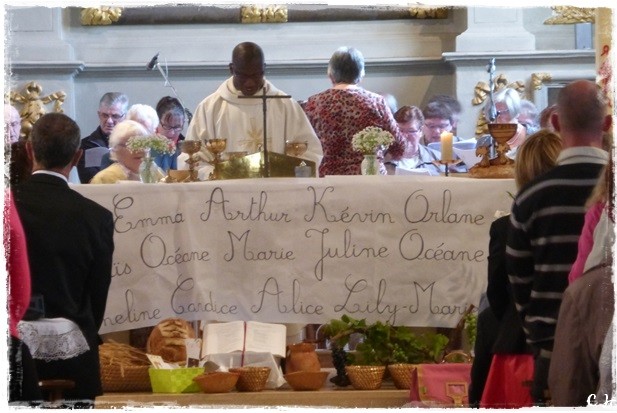 Emma Arthur Kévin Orlane
Océane Marie Juline Océane
Candice Alice Lily-Marie